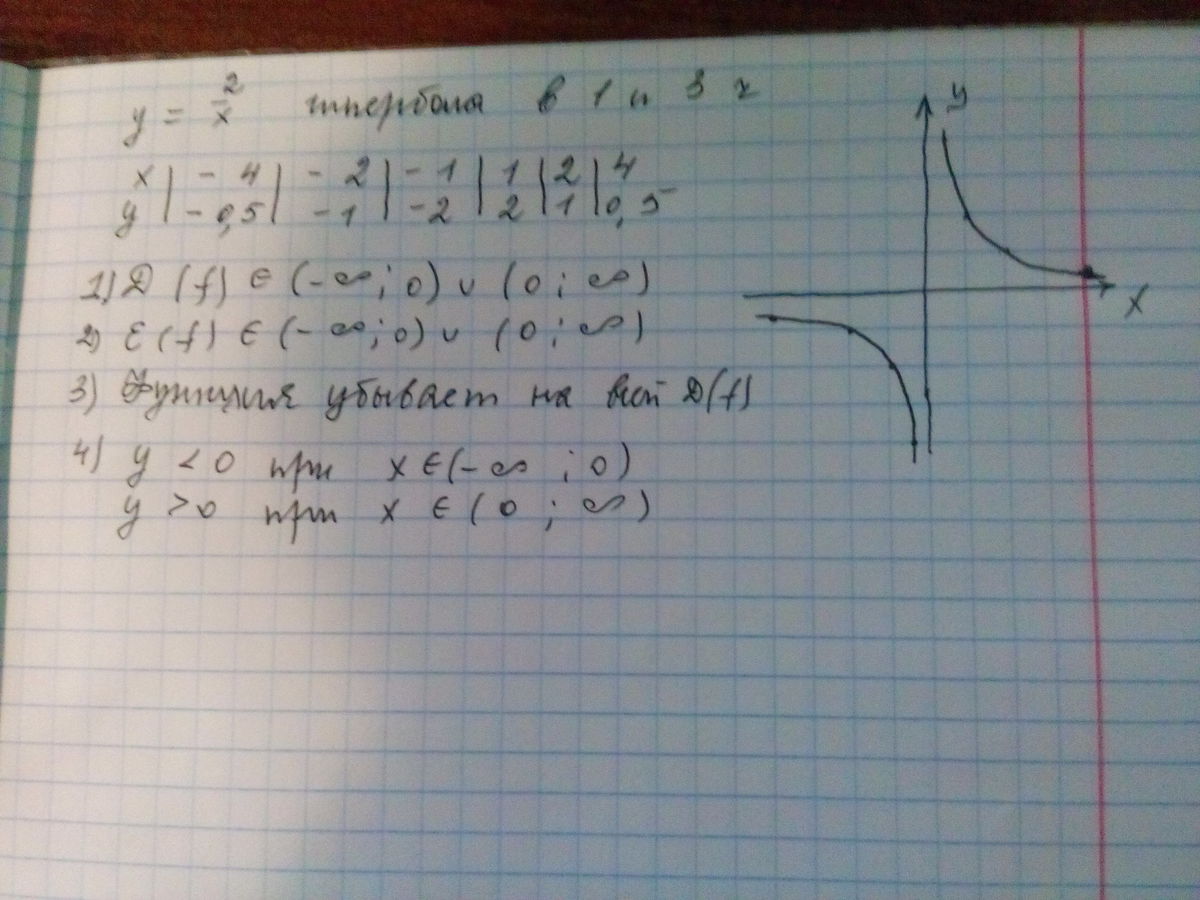 y = 2/x гипербола в 1 и 3 ч
x | - 4 | - 2 | - 1 | 1 | 2 | 4
y | - 0,5 | - 1 | - 2 | 2 | 1 | 0,5
1) D (f) ∈ (-∞; 0) ∪ (0; ∞)
2) E (f) ∈ (-∞; 0) ∪ (0; ∞)
3) Функция убывает на всей D(f)
4) y < 0 при x ∈ (-∞; 0)
y > 0 при x ∈ (0; ∞)
y
x